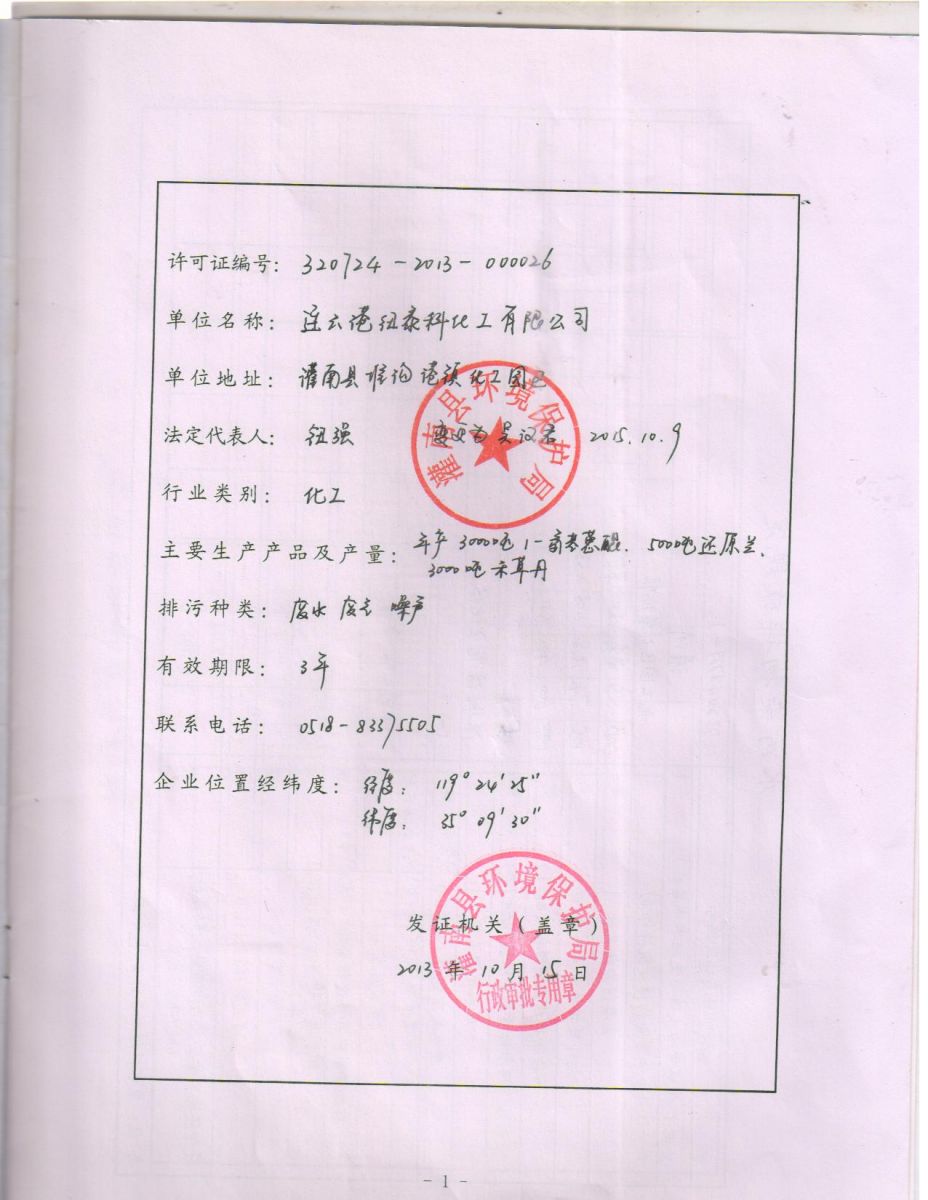 许可证编号: 320724-2013-000026
单位名称: 连云港纽泰科化工有限公司
单位地址: 灌南县堆沟港镇化工园区
法定代表人: 钮强 变更为吴汉君 2015.10.9
灌南县环境保护局
行业类别: 化工
主要生产产品及产量: 年产 30000吨 1-氨基蒽醌、5000吨还原兰、
3000吨禾草丹
排污种类: 废水 废气 噪声
有效期限: 3年
联系电话: 0518-83375505
企业位置经纬度: 经度: 119° 24′ 25″
纬度: 35° 09′ 30″
灌南县环境保护局
发证机关(盖章)
2013年10月15日
行政审批专用章
- 1 -